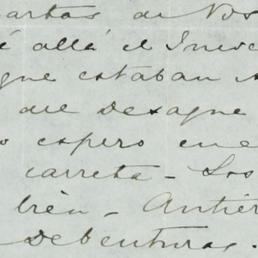 cartas de Vos
é allá el Inesc
que estaban
de desague
o espero en e
carreta - Los
bién - Antier
Debentures.